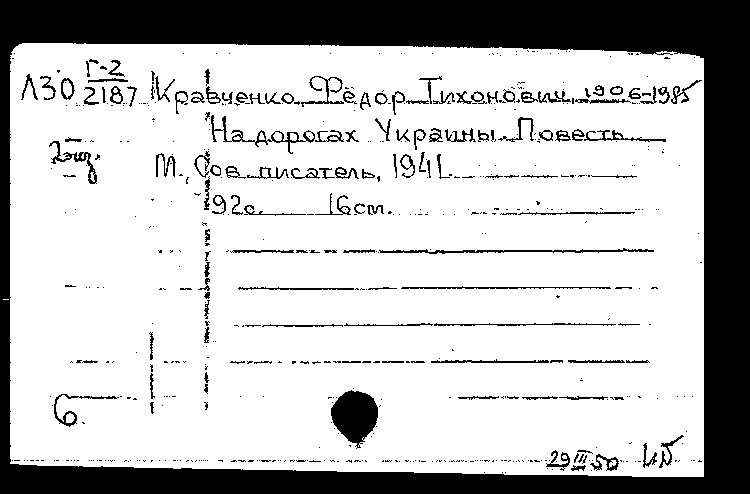 Г-2
Л30 2187 Кравченко, Фёдор Тихонович, 1906-1985
На дорогах Украины. Повесть
2 экз.
М., Сов. писатель, 1941
92с. 16см.
6.
29 III 50